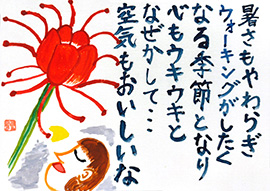 暑さもやわらぎ
ウォーキングがしたく
なる季節となり
心もウキウキと
なぜかして…
空気もおいしいな